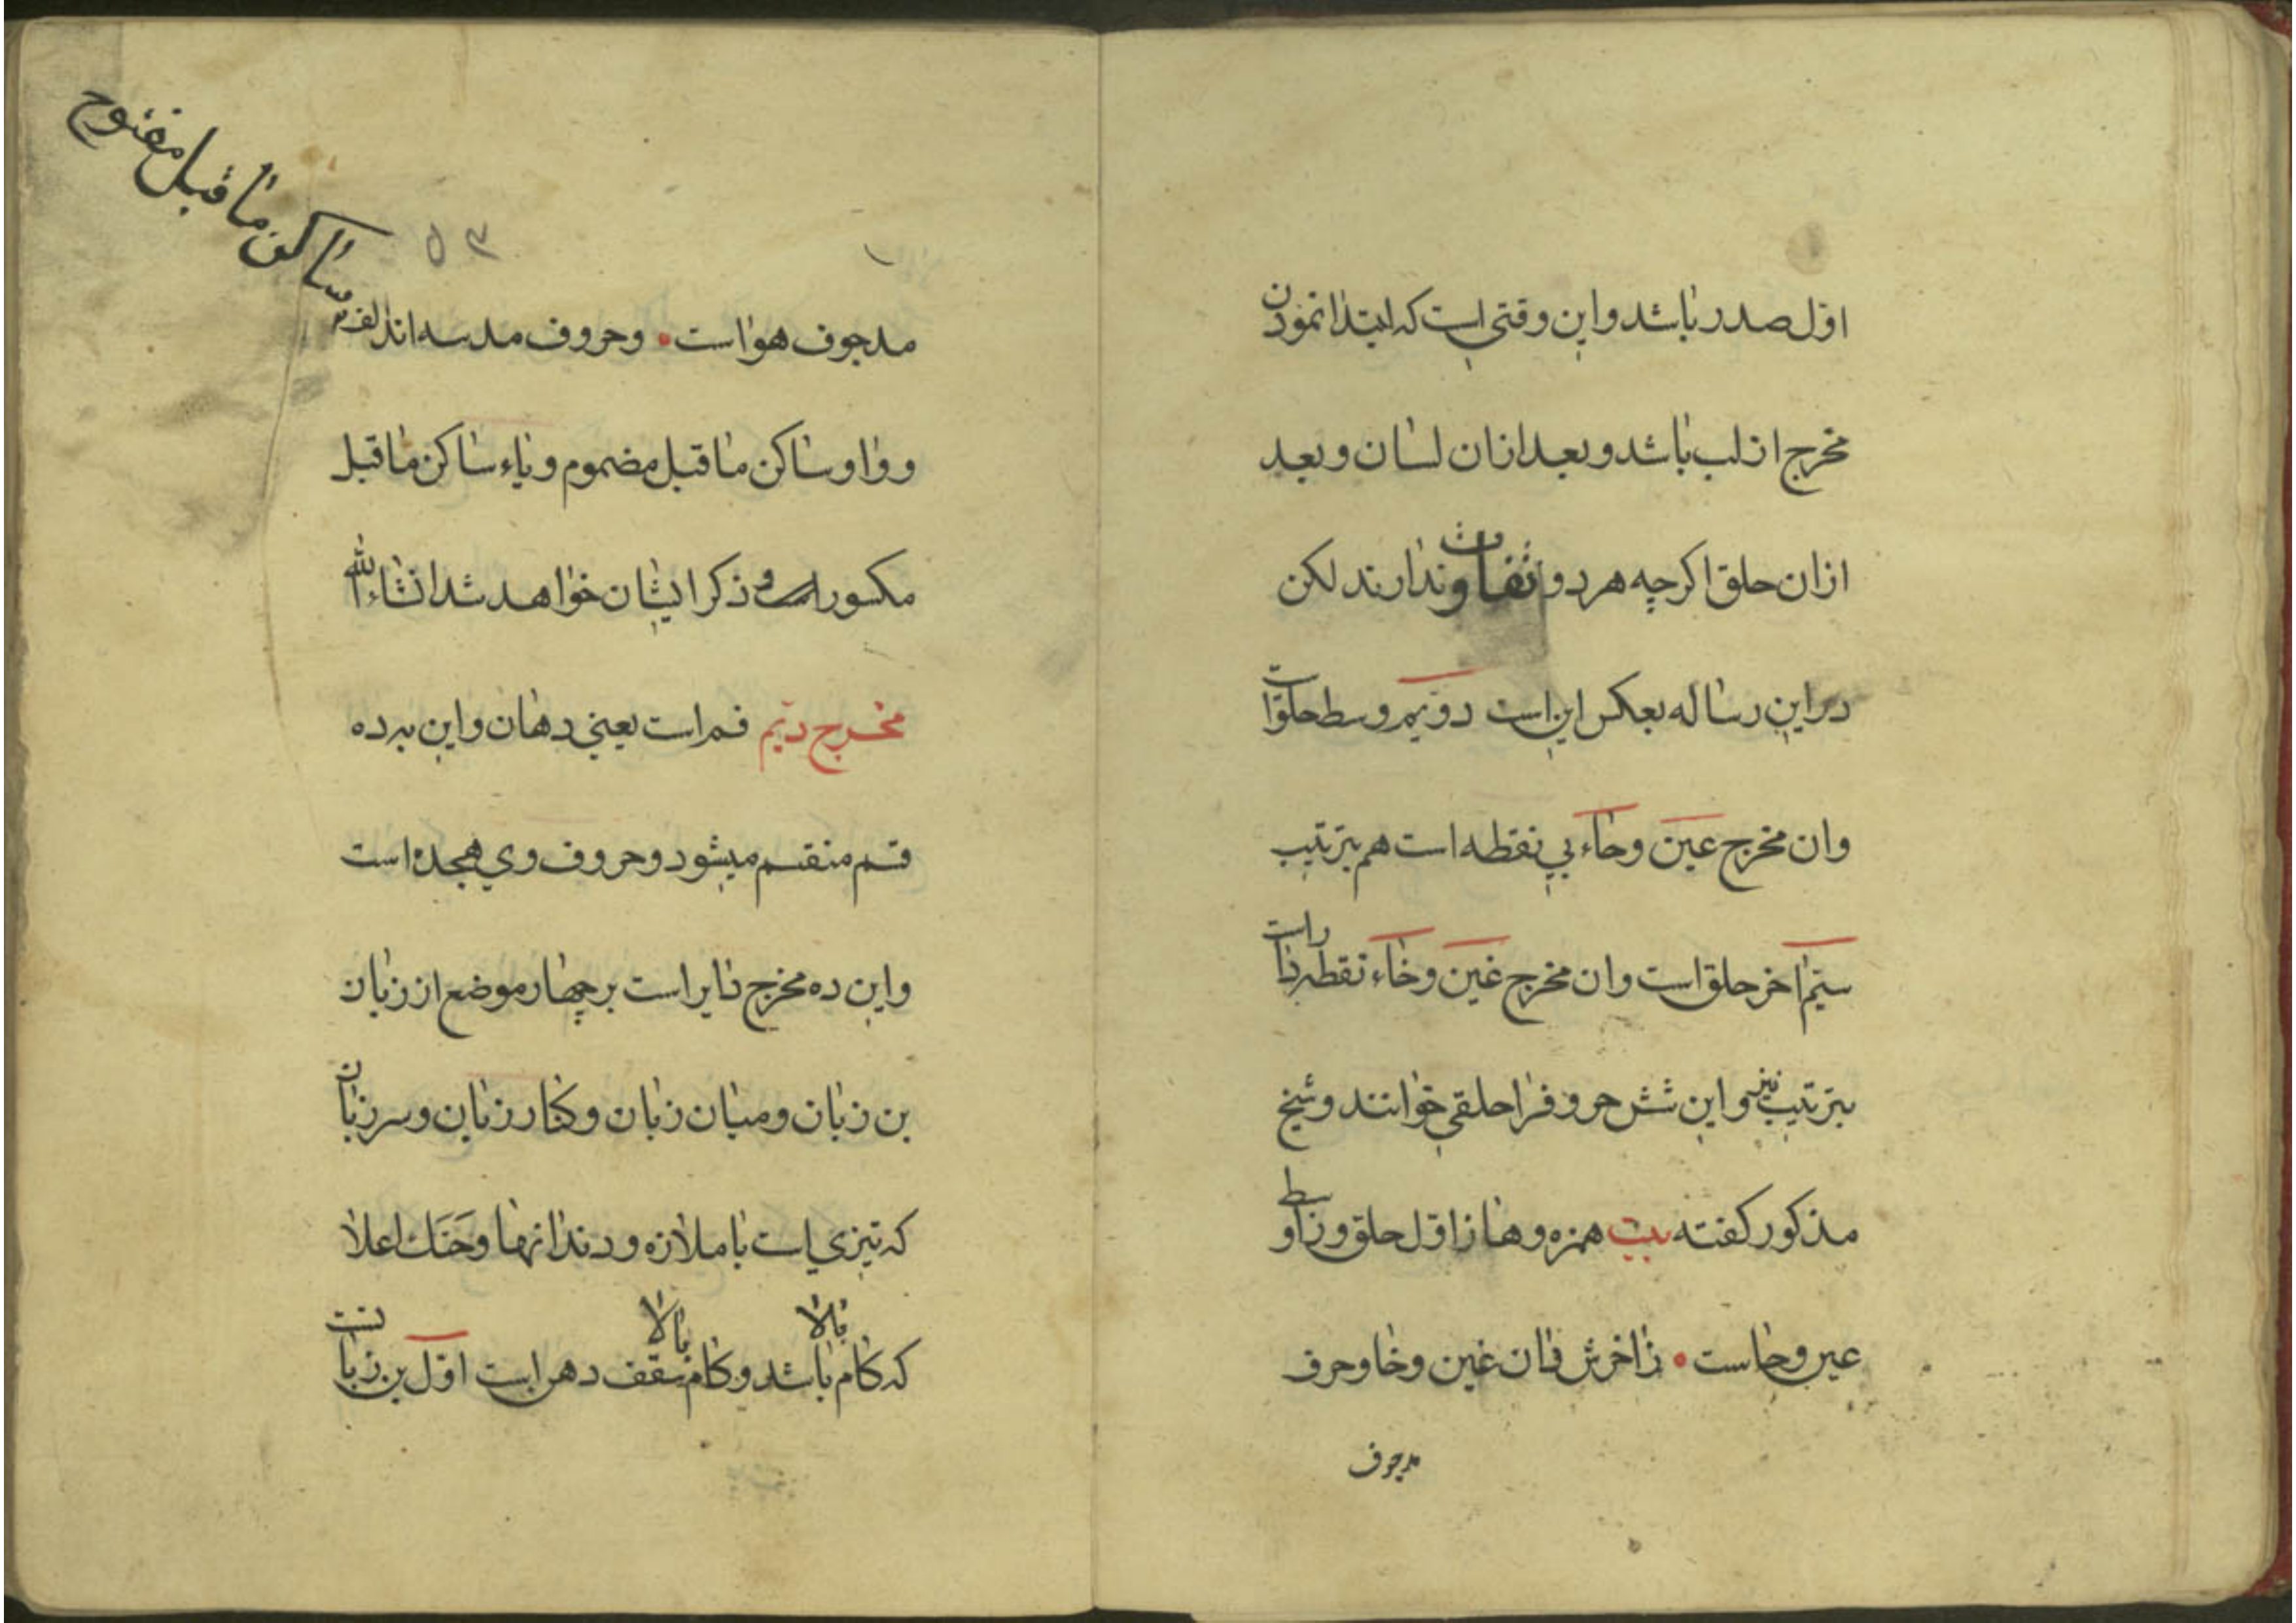 اوّل صدر باشد و این وقتی است که ابتدا نمودن
مخرج از لب باشد و بعد ازان لسان و بعد
ازان حلق اکرچه هر دو تفاوت ندارند لکن
در این رساله بعکس این است دویّم وسط حلق است
وان مخرج عین وحاء بی نقطه است هم بترتیب
سیّم اخر حلق است وان مخرج غین وخاء نقطه دار است
بترتیب نیز و این شش حروف را حلقی خوانند و شیخ
مذکور کفته بیت همزه وها ز اوّل حلق و ز اوسط
عین وحاست • ز اخرش دان غین وخا وحرف
مد جوف
مد جوف هواست • وحروف مد سه اند الف
ساکن ما قبل مفتوح
و واو ساکن ما قبل مضموم و یاء ساکن ما قبل
مکسور است و ذکر ایشان خواهد شد انشاء الله
مخرج دیّم فم است یعنی دهان و این بر ده
قسم منقسم میشود و حروف وی هجده است
و این ده مخرج دایر است بر چهار موضع از زبان
بن زبان و میان زبان و کنار زبان و سر زبان
که تیزی است با ملازه و دندانها و حَنَک اعلا
که کام بالا باشد و کام بالا سقف دهن است اوّل بن زبانست
۵۳